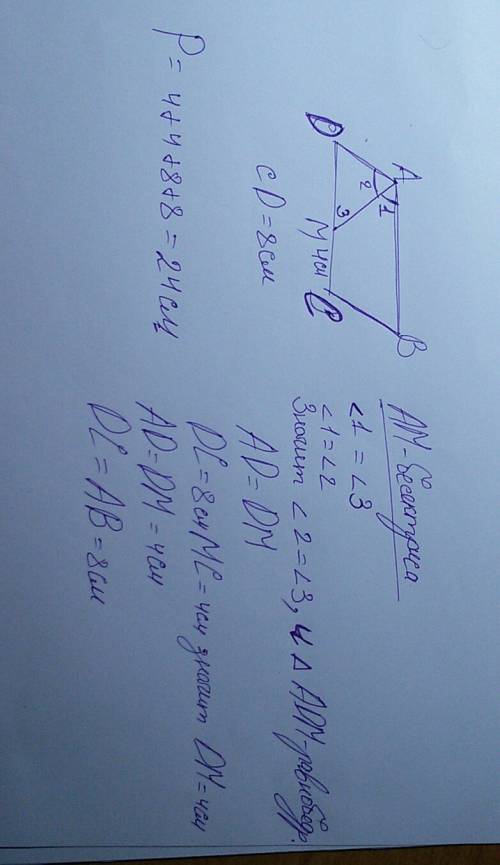 A
1
2
B
D
3
M 4см C
CD = 8см
P = 4+4+8+8 = 24см
AM - биссектриса
∠1 = ∠3
∠1 = ∠2
Значит ∠2 = ∠3, и Δ ADM - равнобедр.
AD = DM
DC = 8см MC = 4см значит DM = 4см
AD = DM = 4см
DC = AB = 8см